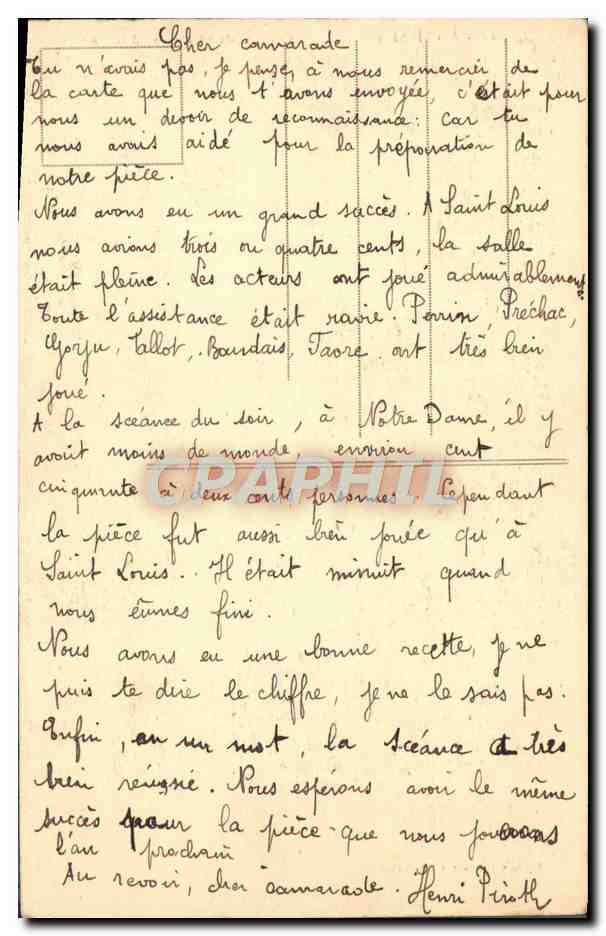 Cher camarade
Tu n'avais pas, je pense, à nous remercier de
la carte que nous t'avons envoyée, c'était pour
nous un devoir de reconnaissance: car tu
nous avais aidé pour la préparation de
notre pièce.
Nous avons eu un grand succès. A Saint Louis
nous avions trois ou quatre cents, la salle
était pleine. Les acteurs ont joué admirablement.
Toute l'assistance était ravie. Perrin, Préchac,
Gorju, Tallot, Baudais, Favre ont très bien
joué.
A la scéance du soir, à Notre Dame, il y
avait moins de monde, environ cent
cinquante à deux cents personnes. Cependant
la pièce fut aussi bien jouée qu'à
Saint Louis.. Il était minuit quand
nous eûmes fini.
Nous avons eu une bonne recette, je ne
puis te dire le chiffre, je ne le sais pas.
Enfin, en un mot, la scéance a très
bien réussie. Nous espérons avoir le même
succès pour la pièce que nous jouerons
l'an prochain
Au revoir, cher camarade. Henri
CPAPHIL